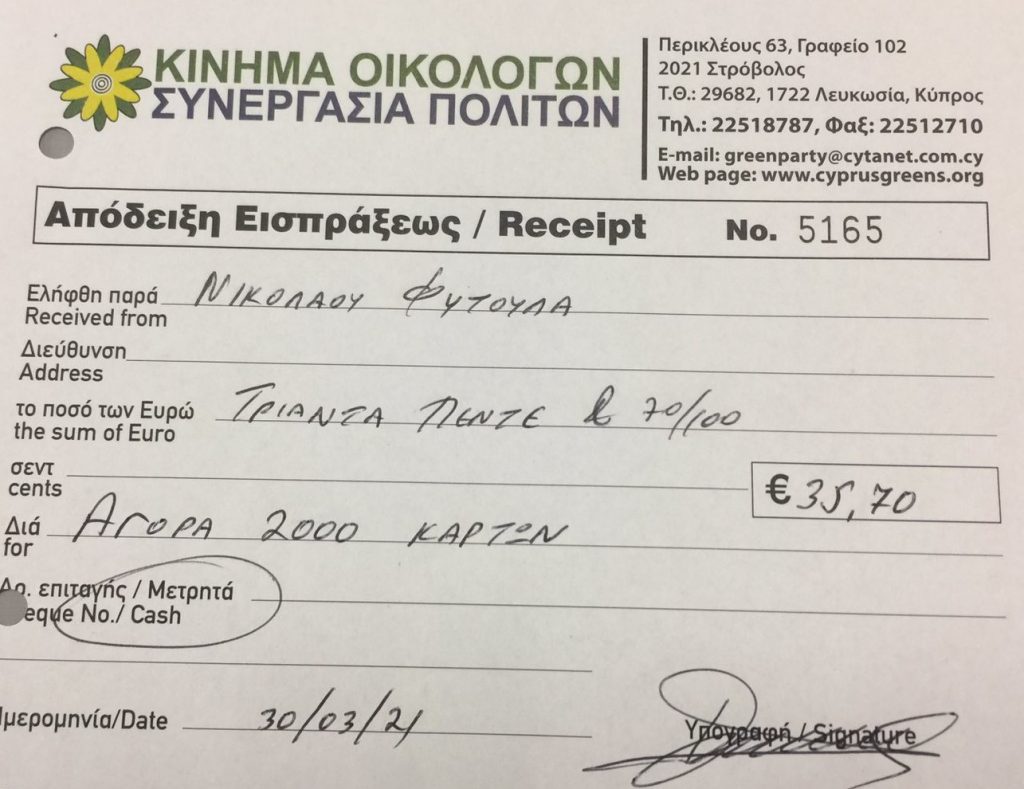 ΚΙΝΗΜΑ ΟΙΚΟΛΟΓΩΝ
ΣΥΝΕΡΓΑΣΙΑ ΠΟΛΙΤΩΝ
Περικλέους 63, Γραφείο 102
2021 Στρόβολος
Τ.Θ.: 29682, 1722 Λευκωσία, Κύπρος
Τηλ.: 22518787, Φαξ: 22512710
E-mail: greenparty@cytanet.com.cy
Web page: www.cyprusgreens.org
Απόδειξη Εισπράξεως / Receipt No. 5165
Ελήφθη παρά ΝΙΚΟΛΑΟΥ ΦΥΤΟΥΛΑ
Received from
Διεύθυνση
Address
το ποσό των Ευρώ ΤΡΙΑΝΤΑ ΠΕΝΤΕ & 70/100
the sum of Euro
σεντ
cents
€ 35,70
Διά ΑΓΟΡΑ 2000 ΚΑΡΤΩΝ
for
Αρ. επιταγής / Μετρητά
eque No./ Cash
μερομηνία/Date 30/03/21
Υπογραφή / Signature